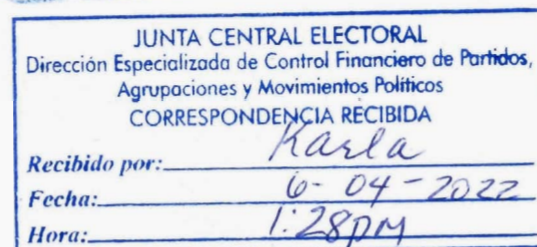 JUNTA CENTRAL ELECTORAL
Dirección Especializada de Control Financiero de Partidos,
Agrupaciones y Movimientos Políticos
CORRESPONDENCIA RECIBIDA
Recibido por: Karla
Fecha: 6-04-2022
Hora: 1:28pm